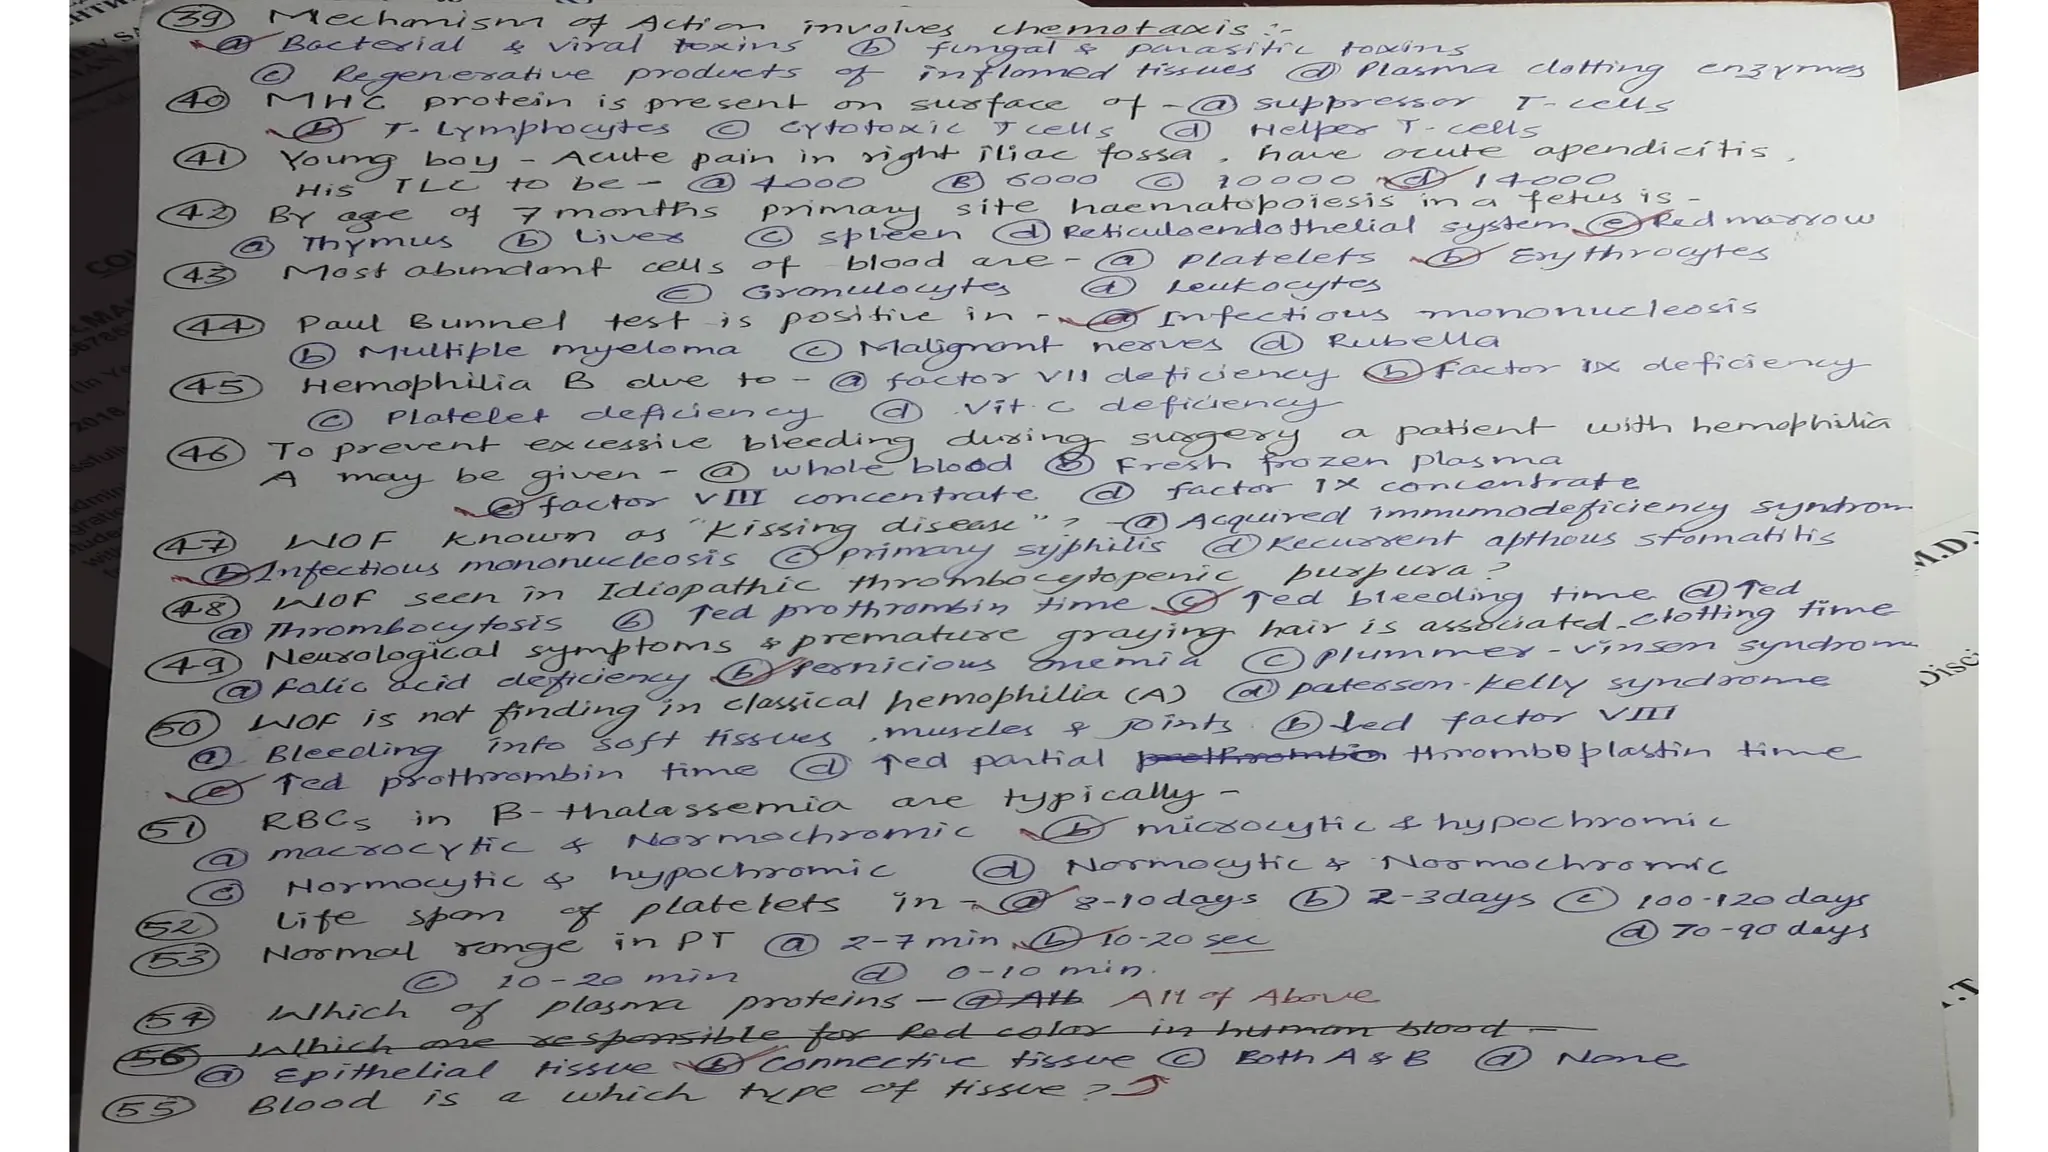 39 Mechanism of Action involves chemotaxis :-
a Bacterial & viral toxins b fungal & parasitic toxins
c Regenerative products of inflamed tissues d Plasma clotting enzymes
40 MHC protein is present on surface of - a suppressor T-cells
b T-Lymphocytes c cytotoxic T cells d Helper T-cells
41 Young boy - Acute pain in right iliac fossa, have acute apendicitis,
His TLC to be - a 4000 B 6000 c 10000 d 14000
42 By age of 7 months primary site haematopoiesis in a fetus is -
a Thymus b Liver c spleen d Reticuloendothelial system e Red marrow
43 Most abundant cells of blood are - a platelets b Erythrocytes
c Granulocytes d Leukocytes
44 Paul Bunnel test is positive in - a Infectious mononucleosis
b Multiple myeloma c Malignant nerves d Rubella
45 Hemophilia B due to - a factor VII deficiency b Factor IX deficiency
c Platelet deficiency d Vit. C deficiency
46 To prevent excessive bleeding during surgery a patient with hemophilia
A may be given - a whole blood b Fresh frozen plasma
c factor VIII concentrate d factor IX concentrate
47 WOF known as "Kissing disease"? - a Acquired immunodeficiency syndrom
b Infectious mononucleosis c primary syphilis d Recurrent apthous stomatitis
48 WOF seen in Idiopathic thrombocytopenic purpura?
a Thrombocytosis b ↑ed prothrombin time c ↑ed bleeding time d ↑ed
clotting time
49 Neurological symptoms & premature graying hair is associated -
a Folic acid deficiency b Pernicious anemia c plummer-vinson syndrom
d paterson-kelly syndrome
50 WOF is not finding in classical hemophilia (A)
a Bleeding into soft tissues, muscles & joints b ↓ed factor VIII
c ↑ed prothrombin time d ↑ed partial prothrombin thromboplastin time
51 RBCs in B-thalassemia are typically -
a macrocytic & Normochromic b microcytic & hypochromic
c Normocytic & hypochromic d Normocytic & Normochromic
52 Life span of platelets in - a 8-10 days b 2-3 days c 100-120 days
d 70-90 days
53 Normal range in PT a 2-7 min b 10-20 sec
c 10-20 min d 0-10 min.
54 Which of plasma proteins - a All All of Above
56 Which one responsible for Red color in human blood -
a Epithelial tissue b Connective tissue c Both A & B d None
55 Blood is a which type of tissue?
M.D.
Disci